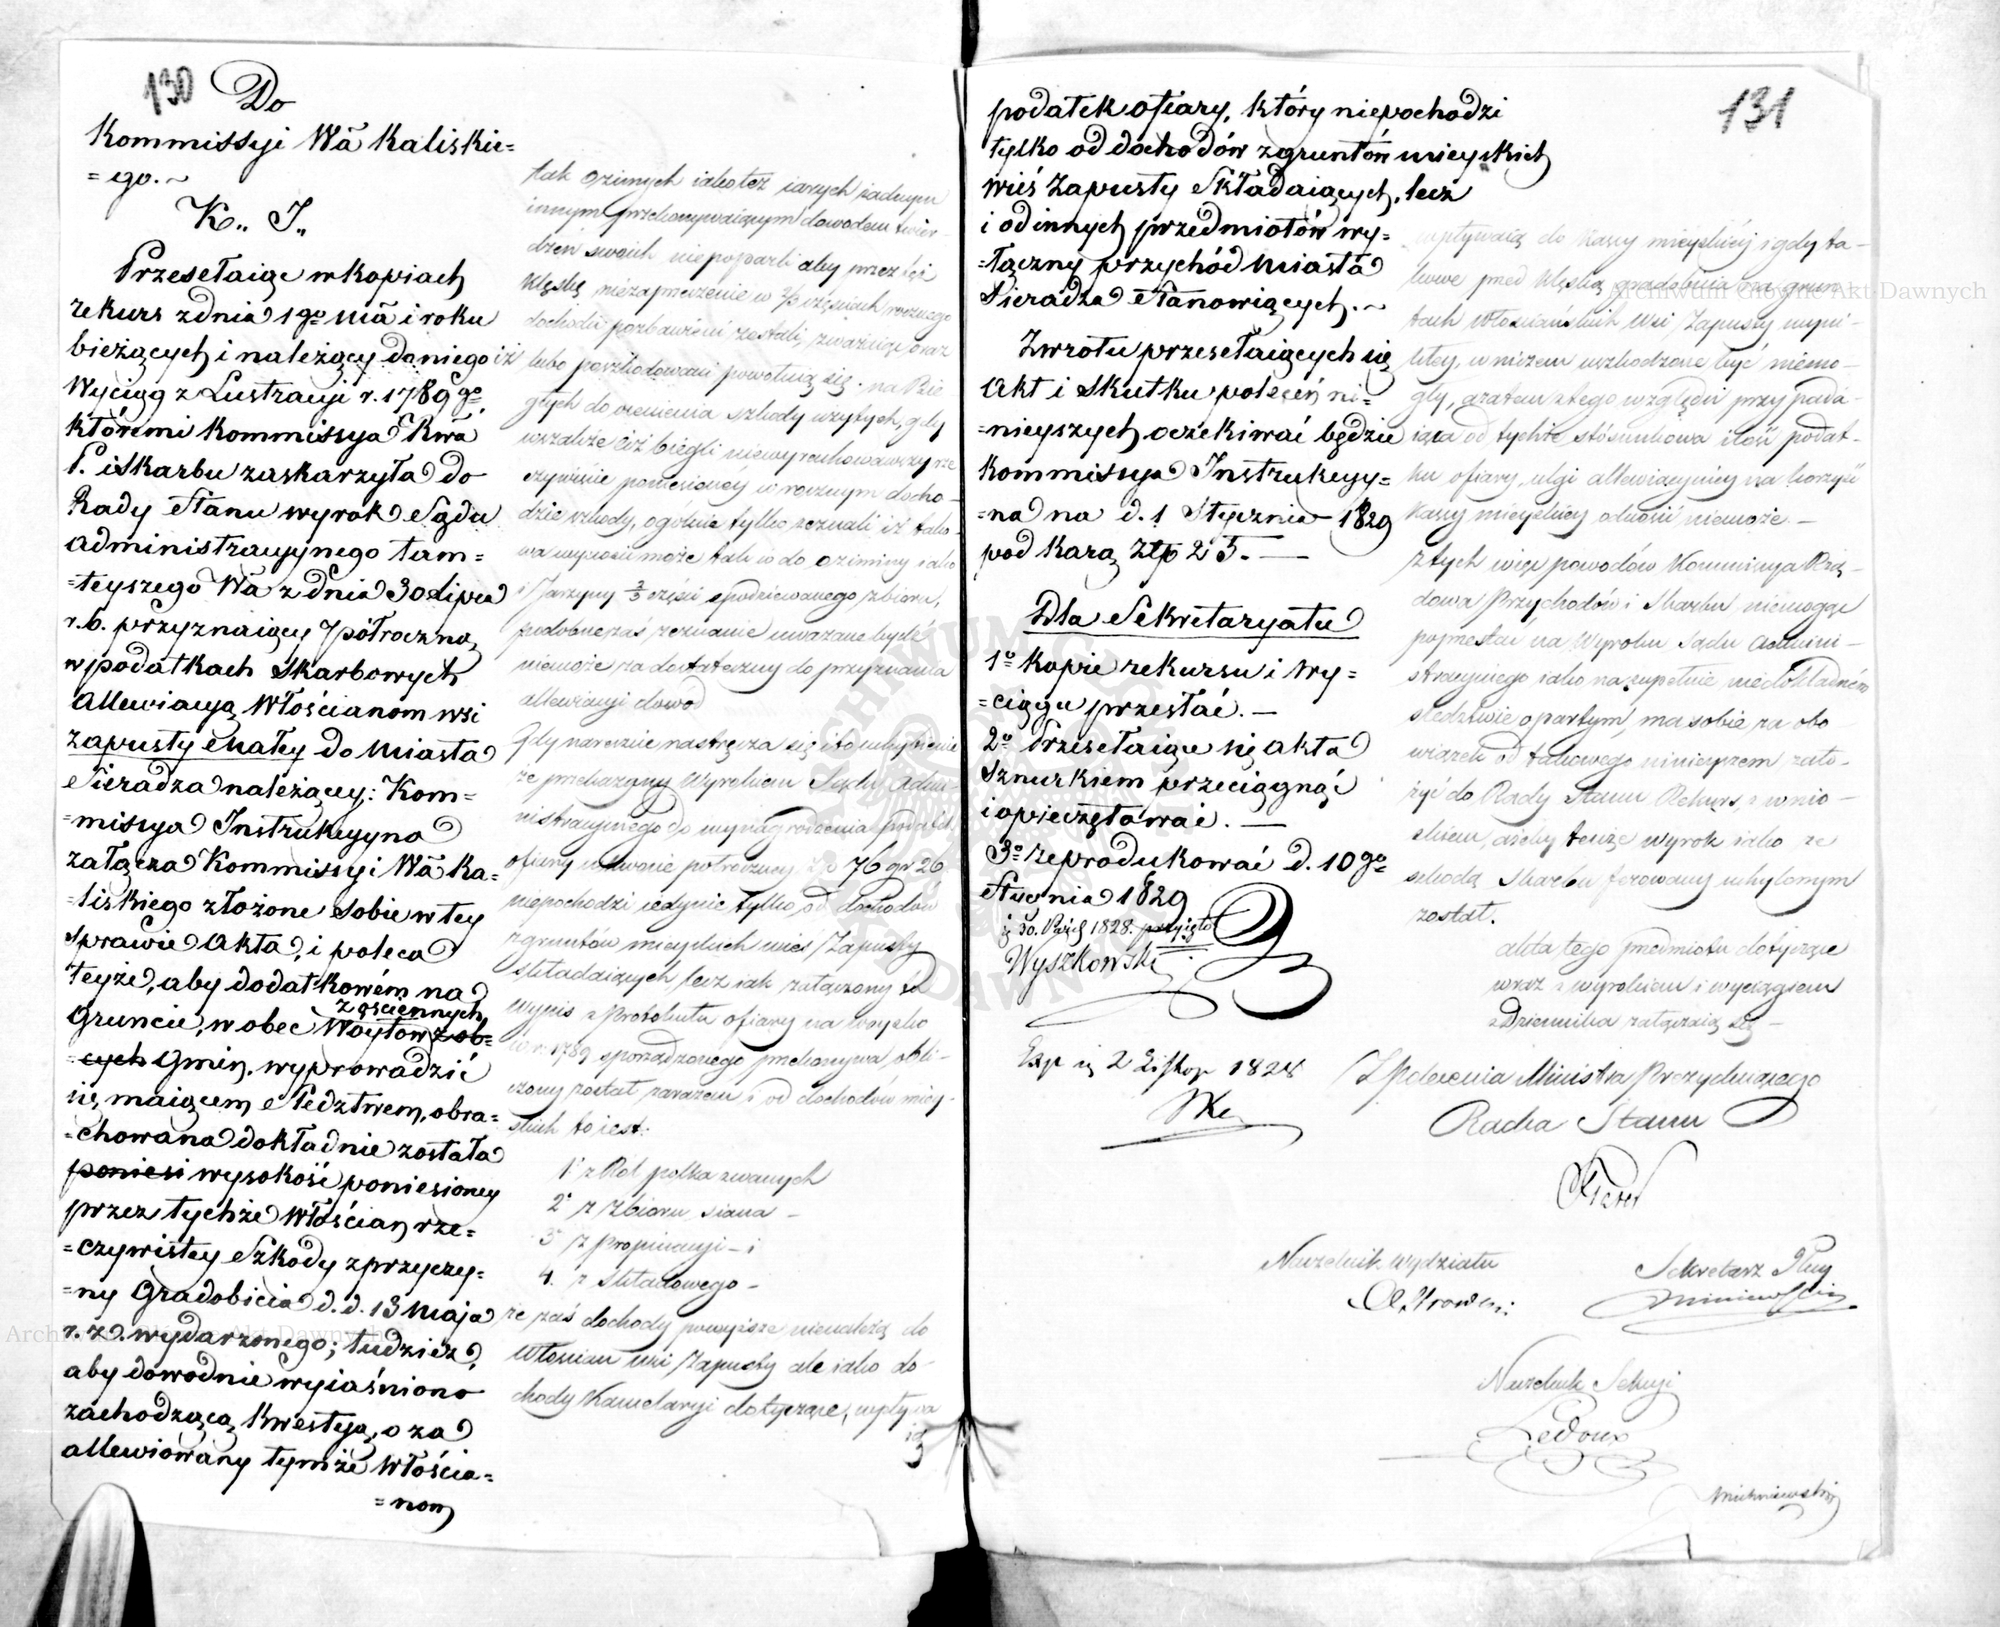 130
Do
Kommissyi Wā Kaliskie=
=go.~
K„ I„
Przesełaiąc w kopiach
rekurs z dnia 1go mā i roku
bieżących i należący do niego iż
Wyciąg z Lustracyi r. 1789 go
któremi Kommissya Rwā
P. i Skarbu zaskarzyła do
Rady Stanu wyrok Sądu
Administracyynego tam=
=teyszego Wā z dnia 30 Lipca
r. b. przyznaiący 7 półroczną
w podatkach Skarbowych
allewiacyą Włościanom wsi
Zapusty Małey do Miasta
Sieradza należącey: Kom=
=missya Instrukcyyna
załącza Kommissyi Wā Ka=
=liskiego złożone sobie w tey
sprawie Akta, i poleca
teyże, aby dodatkowém na
Gruncie, w obec Woytów z ob=
z ościennych
=cych Gmin, wyprowadzić
się maiącem Sledztwem, obra=
=chowana dokładnie została
poniesi wysokość poniesioney
przez tychże Włościan rze=
=czywistey Szkody z przyczy=
=ny Gradobicia d. d. 13 Maja
r. z. wydarzonego; tudzież,
aby dowodnie wyiaśniono
zachodzącą kwestyą, o za
allewiowany tymże Włościa=
=nom
tak ozimych iako też iarych żadnym
innym przekonywaiącym dowodem twier-
dzeń swoich nie poparli aby przez tęż
klęskę niezaprzeczenie w 2/3 częściach rocznego
dochodu pozbawieni zostali, zważaiąc oraz
lubo poszkodowani powołuią się na Bie
głych do ocenienia szkody użytych, gdy
wszakże ciż biegli niewyrachowawszy rze
czywiście poniesioney w rocznym docho-
dzie szkody, ogólnie tylko zeznali iż tako-
wa wynosić może tak co do oziminy iako
i Jarzyny 2/3 części spodziewanego zbioru,
podobne zaś zeznanie uważane bydź
niemoże za dostateczny do przyznania
allewiacyi dowód
Gdy nareszcie nastręcza się i to uchybienie
że przekazany Wyrokiem Sądu Admi-
nistracyinego do wynagrodzenia podatek
ofiary w kwocie półroczney Zp 76 gr 26
niepochodzi iedynie tylko od dochodów
z gruntów mieyskich wieś Zapusty
składaiących, lecz iak załączony tu
wypis z Protokułu ofiary na woysko
w r. 1789 sporządzonego przekonywa obli-
czony został zarazem i od dochodów miey-
skich to iest:
1° z Ról polka zwanych
2° z Zbioru siana -
3° z Propinacyi - i
4. z Składowego -
że zaś dochody powyższe nienależą do
Włościan wsi Zapusty ale iako do-
chody Kamelaryi dotyczące, wpływa
ią
131
podatek ofiary, który niepochodzi
tylko od dochodów z gruntów mieyskich
wieś Zapusty Składaiących, lecz
i od innych przedmiotów wy=
=łączny przychód Miasta
Sieradza Stanowiących.~
Zwrotu przesełaiących się
Akt i Skutku poleceń ni=
=nieyszych oczekiwać będzie
Kommissya Instrukcyy=
=na na d. 1 Stycznia 1829
pod karą Złp 25.—
Dla Sekretaryatu
1° Kopie rekursu i wy=
=ciągu przesłać.—
2° Przesełaiące się Akta
Sznurkiem przeciągnąć
i opieczętować.—
3° reprodukować d. 10 go
Stycznia 1829
1828. przyięto
Wyszkowski
Exp 1828
wpływaią do Kassy mieyskiéj i gdy ta-
kowe przed klęską gradobicia na grun
tach Włościańskich Wsi Zapusty wyni-
kłey, w niczem uszkodzone być niemo-
gły, a zatem z tego względu przypada-
iąca od tychże stósunkowa ilość podat-
ku ofiary, ulgi allewiacyiney na korzyść
Kassy mieyskiey odnosić niemoże.—
Z tych więc powodów Kommissya Rzą-
dowa Przychodów i Skarbu niemogąc
poprzestać na Wyroku Sądu Admini-
stracyinego iako na zupełnie niedokładném
śledztwie opartym, ma sobie za obo
wiązek od takowego ninieyszem zało-
żyć do Rady Stanu Rekurs z wnio-
skiem, ażeby tenże wyrok iako ze
szkodą Skarbu ferowany uchylonym
został.
akta tego przedmiotu dotyczące
wraz z wyrokiem i wyciągiem
z Dziennika załączaią się—
Z Polecenia Ministra Prezyduiącego
Radca Stanu
Naczelnik Wydziału
Sekretarz Jlny
Naczelnik Sekcyi
Ledoux
Archiwum Główne Akt Dawnych
Archiwum Główne Akt Dawnych